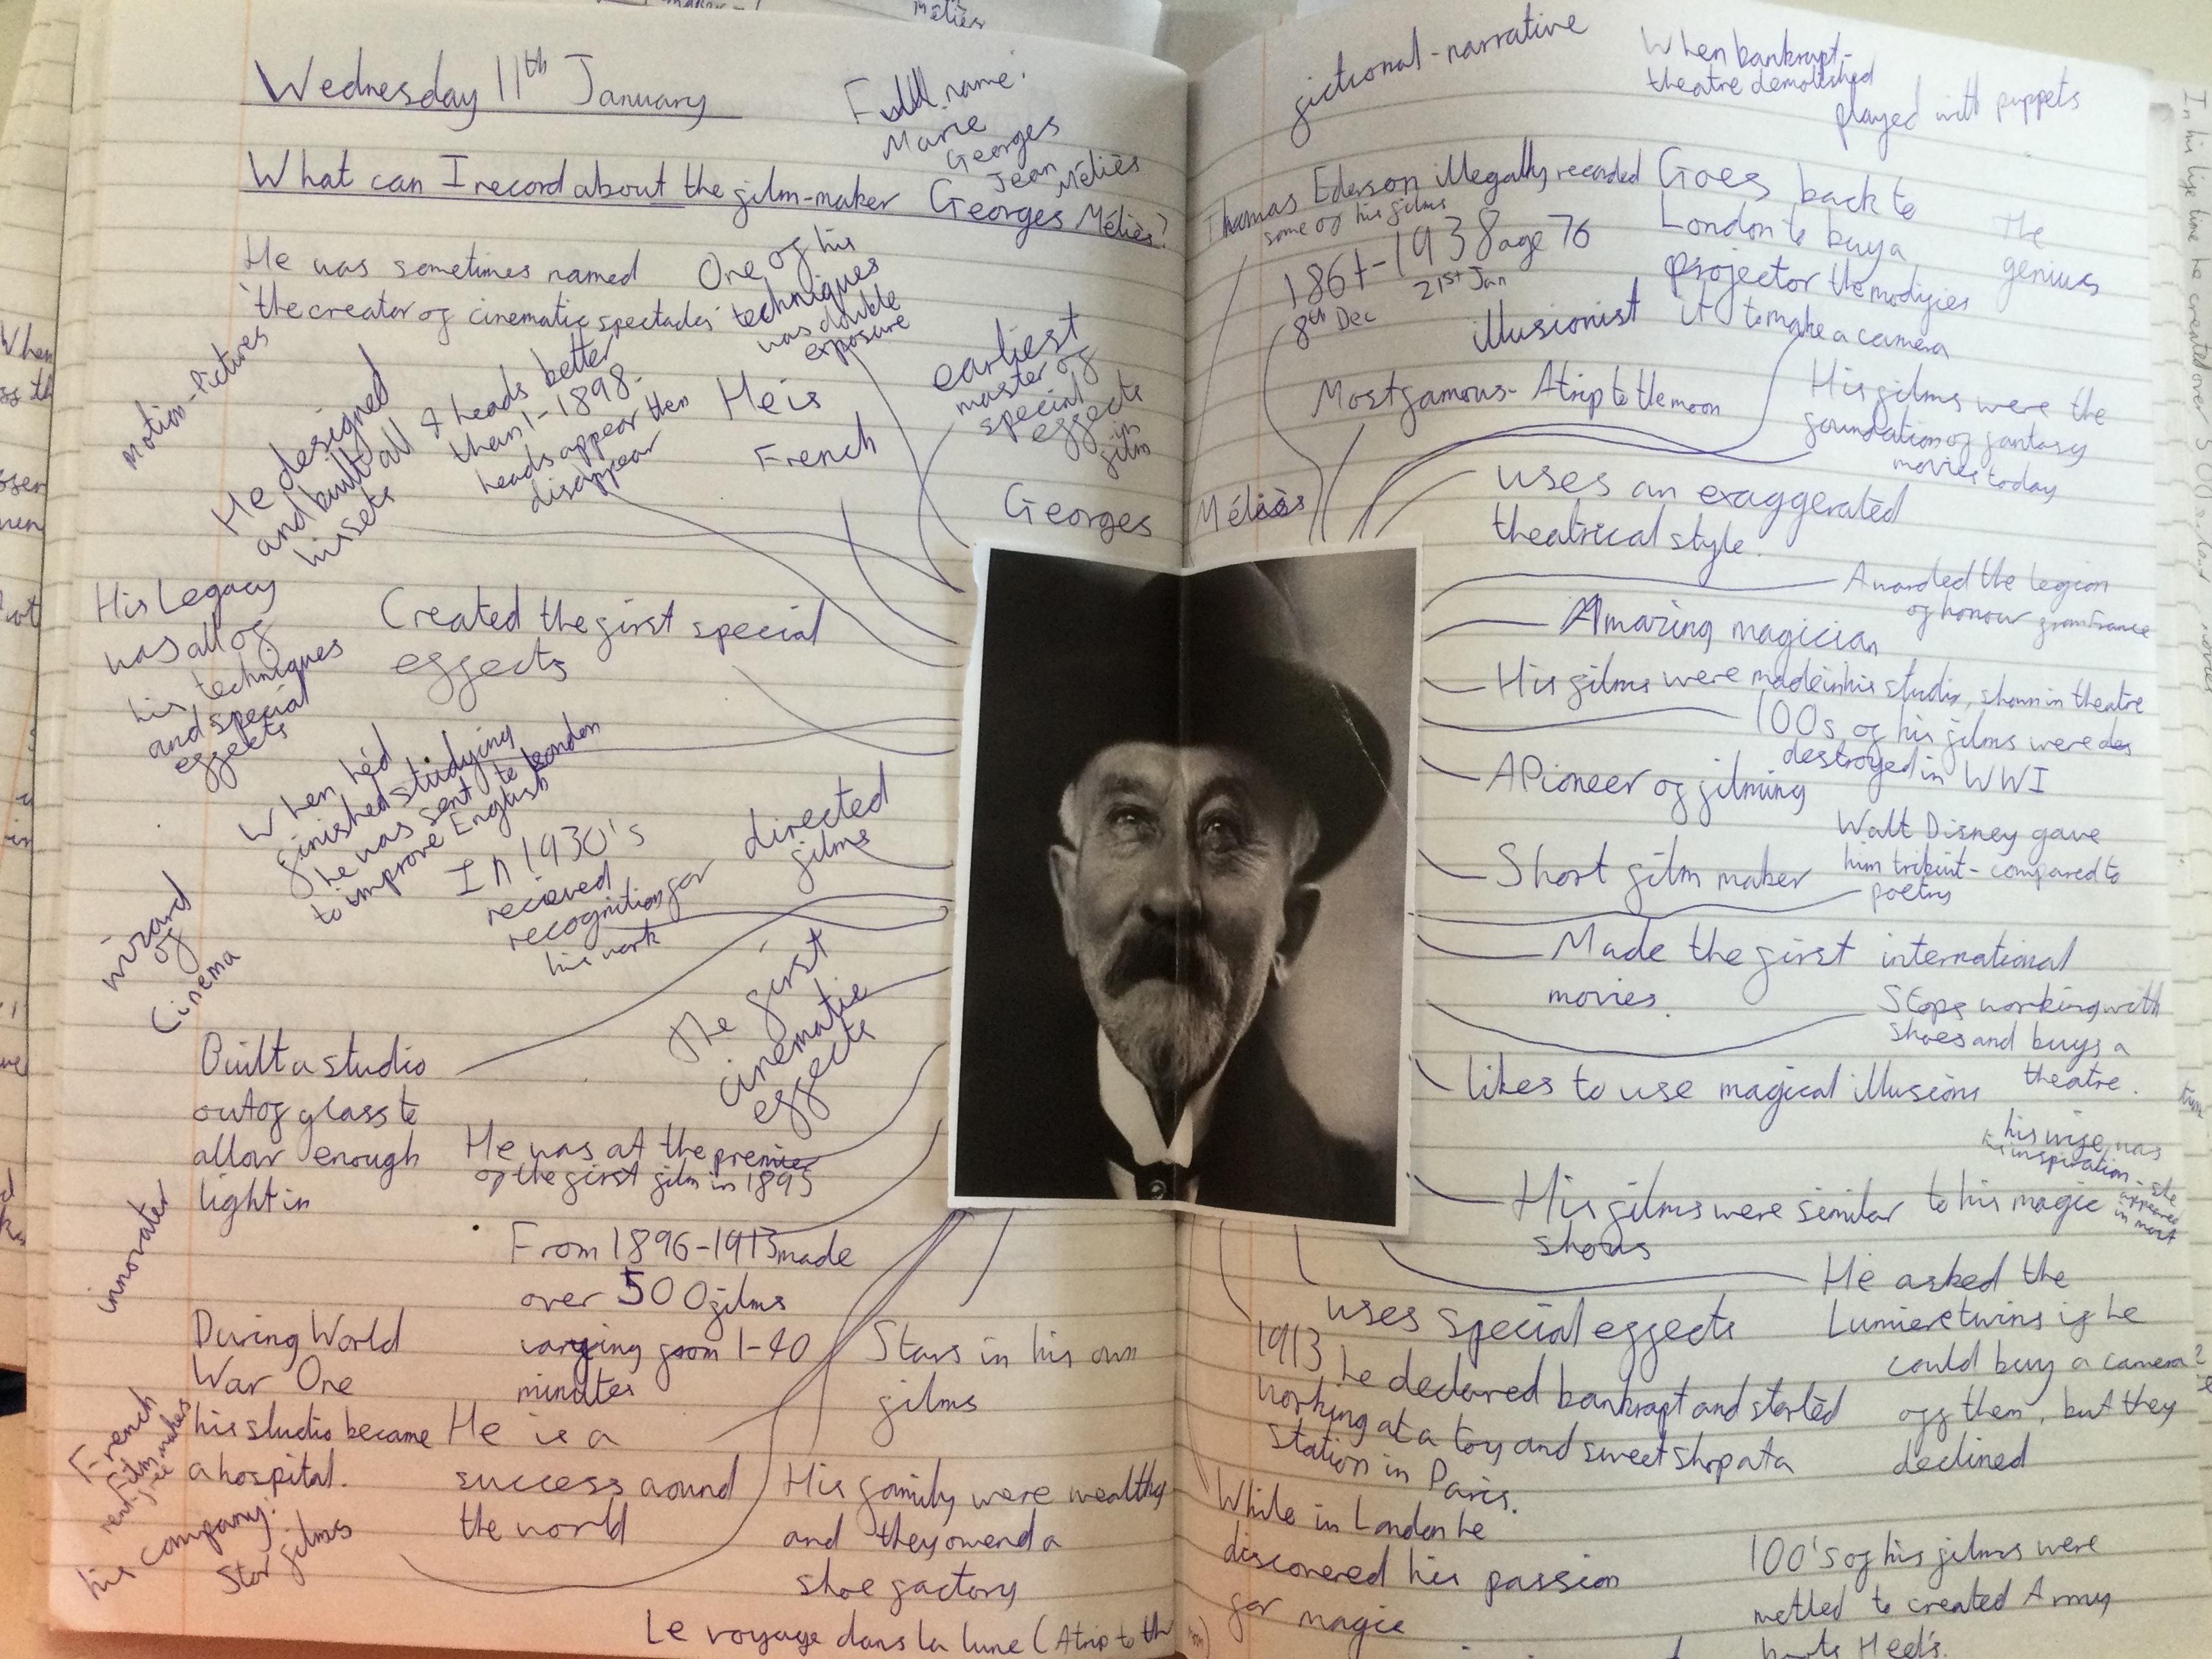 Wednesday 11th January
Full name:
Marie
Georges
Jean
Méliès
What can I record about the film-maker Georges Méliès?
He was sometimes named
'the creator of cinematic spectacles'
One of his
techniques
was double
exposure
motion-Pictures
He designed
and built all
his sets
4 heads better
than 1-1898-
heads appear then
disappear
He is
French
earliest
master of
special
effects
in
film
Georges
His Legacy
was all of
his techniques
and special
effects
Created the first special
effects
When he'd
finished studying
he was sent to London
to improve English
In 1930's
recieved
recognition for
his work
directed
films
wizard
of
Cinema
The first
cinematic
effects
Built a studio
out of glass to
allow enough
light in
He was at the premier
of the first film in 1895
innovater
From 1896-1913 made
over 500 films
varying from 1-40
minutes
During World
War One
his studio became
a hospital.
Stars in his own
films
He is a
success around
the world
French
Film
his company:
Star films
His family were wealthy
and they owend a
shoe factory
Le voyage dans la lune (A trip to the
fictional-narrative
When bankrupt-
theatre demolished
played with puppets
Thomas Ederson illegally recorded
some of his films
1861-1938 age 76
8th Dec
21st Jan
Goes back to
London to buy a
projector the modifies
it to make a camera
The
genius
illusionist
Most famous- A trip to the moon
His films were the
foundation of fantasy
movies today
Méliès
uses an exaggerated
theatrical style.
Awarded the legion
of honour from France
Amazing magician
His films were made in his studio, shown in theatre
100s of his films were des
destroyed in WWI
A Pioneer of filming
Walt Disney gave
him tribiut- compared to
poetry
Short film maker
Made the first international
movies.
Stops working with
shoes and buys a
theatre.
likes to use magical illusions
his wife was
inspiration - she
appeared
in most
His films were similar to his magic
shows
He asked the
Lumiere twins if he
could buy a camera
off them, but they
declined
uses special effects
1913 he declared bankrapt and started
working at a toy and sweet shop at a
station in Paris.
While in London he
discovered his passion
for magic
100's of his films were
metled to created Army
boots Heel's.
In his life time he created over 500